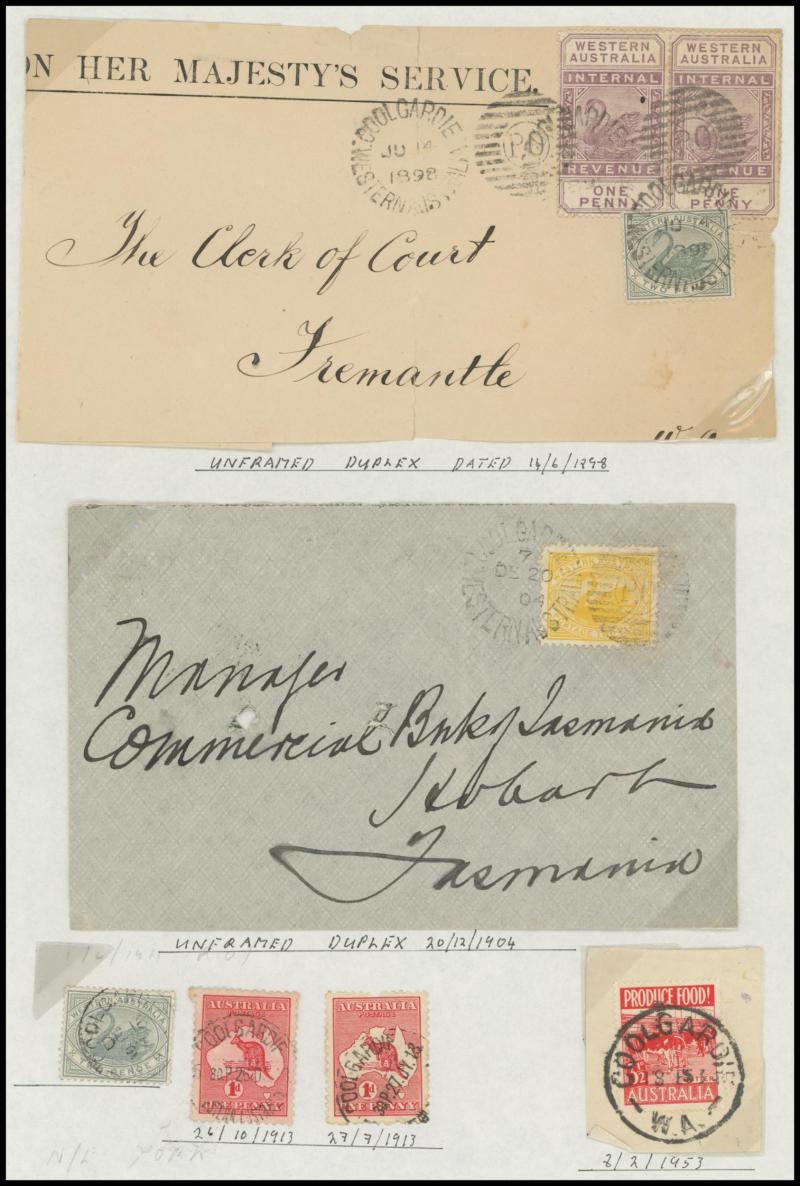 ON HER MAJESTY'S SERVICE.
WESTERN AUSTRALIA
INTERNAL
REVENUE
ONE PENNY
WESTERN AUSTRALIA
INTERNAL
ONE PENNY
COOLGARDIE
JU 14
1898
WESTERN AUSTRALIA
PO
The Clerk of Court
Fremantle
UNFRAMED DUPLEX DATED 14/6/1898
COOLGARDIE
7
DE 20
04
WESTERN AUSTRALIA
Manager
Commercial Bnk of Tasmania
Hobart
Tasmania
UNFRAMED DUPLEX 20/12/1904
WESTERN AUSTRALIA
PENCE
AUSTRALIA
POSTAGE
1D
ONE PENNY
COOLGARDIE
AUSTRALIA
POSTAGE
1D
ONE PENNY
COOLGARDIE
PRODUCE FOOD!
AUSTRALIA
COOLGARDIE
W.A.
26/10/1913
27/7/1913
8/2/1953